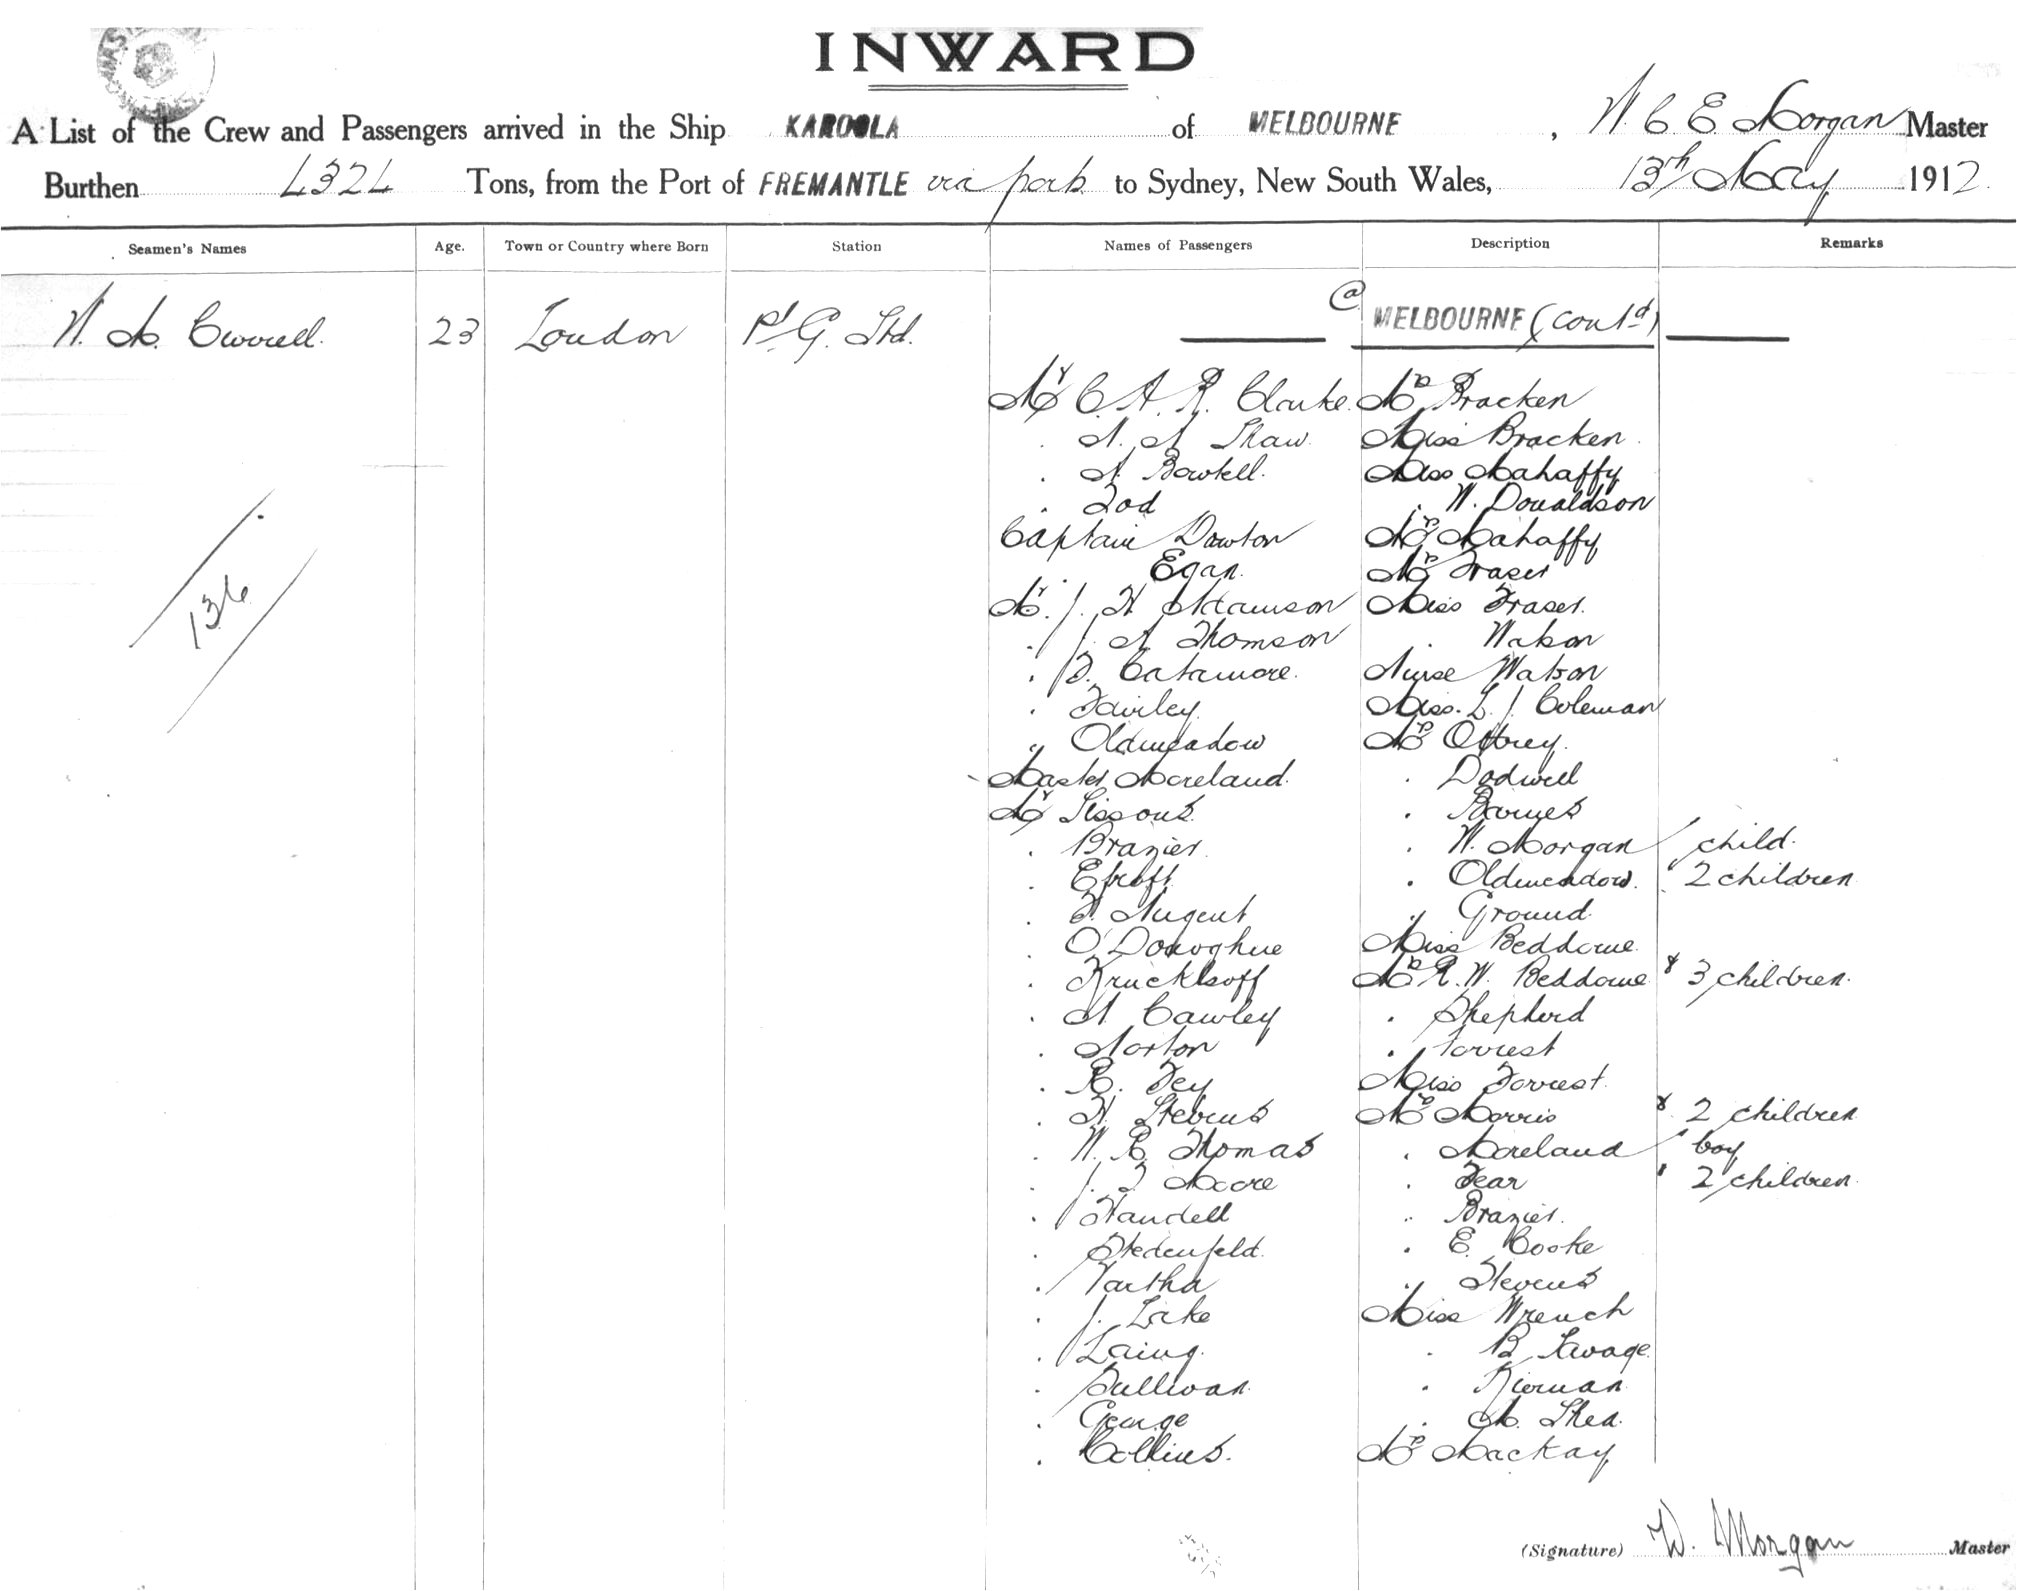 INWARD
A List of the Crew and Passengers arrived in the Ship KAROOLA of MELBOURNE, W. C. E Morgan Master
Burthen 4324 Tons, from the Port of FREMANTLE via ports to Sydney, New South Wales, 13th May 1912.
Seamen's Names Age. Town or Country where Born Station Names of Passengers Description Remarks
@ MELBOURNE (contd)
23 London P. G. Std.
Mr C. A. R. Clarke. Mrs Bracken
Shaw Miss Bracken
Bowtell. Miss Mahaffy
Tod W. Donaldson
Captain Dowton Mrs Mahaffy
Egan. Mrs Fraser
Mr. J. H Adamson Miss Fraser.
J. A Thomson Watson
Catamore. Nurse Watson
Fairley Miss. L. J. Coleman
Oldmeadow Mrs Ottrey.
Master Moreland. Dodwell
Mr Sissons. Barnes
Brazier. W. Morgan child.
Oldmeadow. 2 children
Nugent Ground.
O'Donoghue Miss Beddome
Mrs R. W. Beddome & 3 children.
Cawley Shepherd
Norton Forrest
R. Fey Miss Forrest.
H Stevens Mrs Morris & 2 children
W. R. Thomas Moreland boy
J. Moore Fear 2 children.
Handell Brazier.
E. Cooke
Vartha Stevens
J. Lake Miss Wrench
Laing. B Savage.
Sullivan. Kiernan
George M. Shea.
Collins. Mrs Mackay
136
(Signature) W. Morgan Master